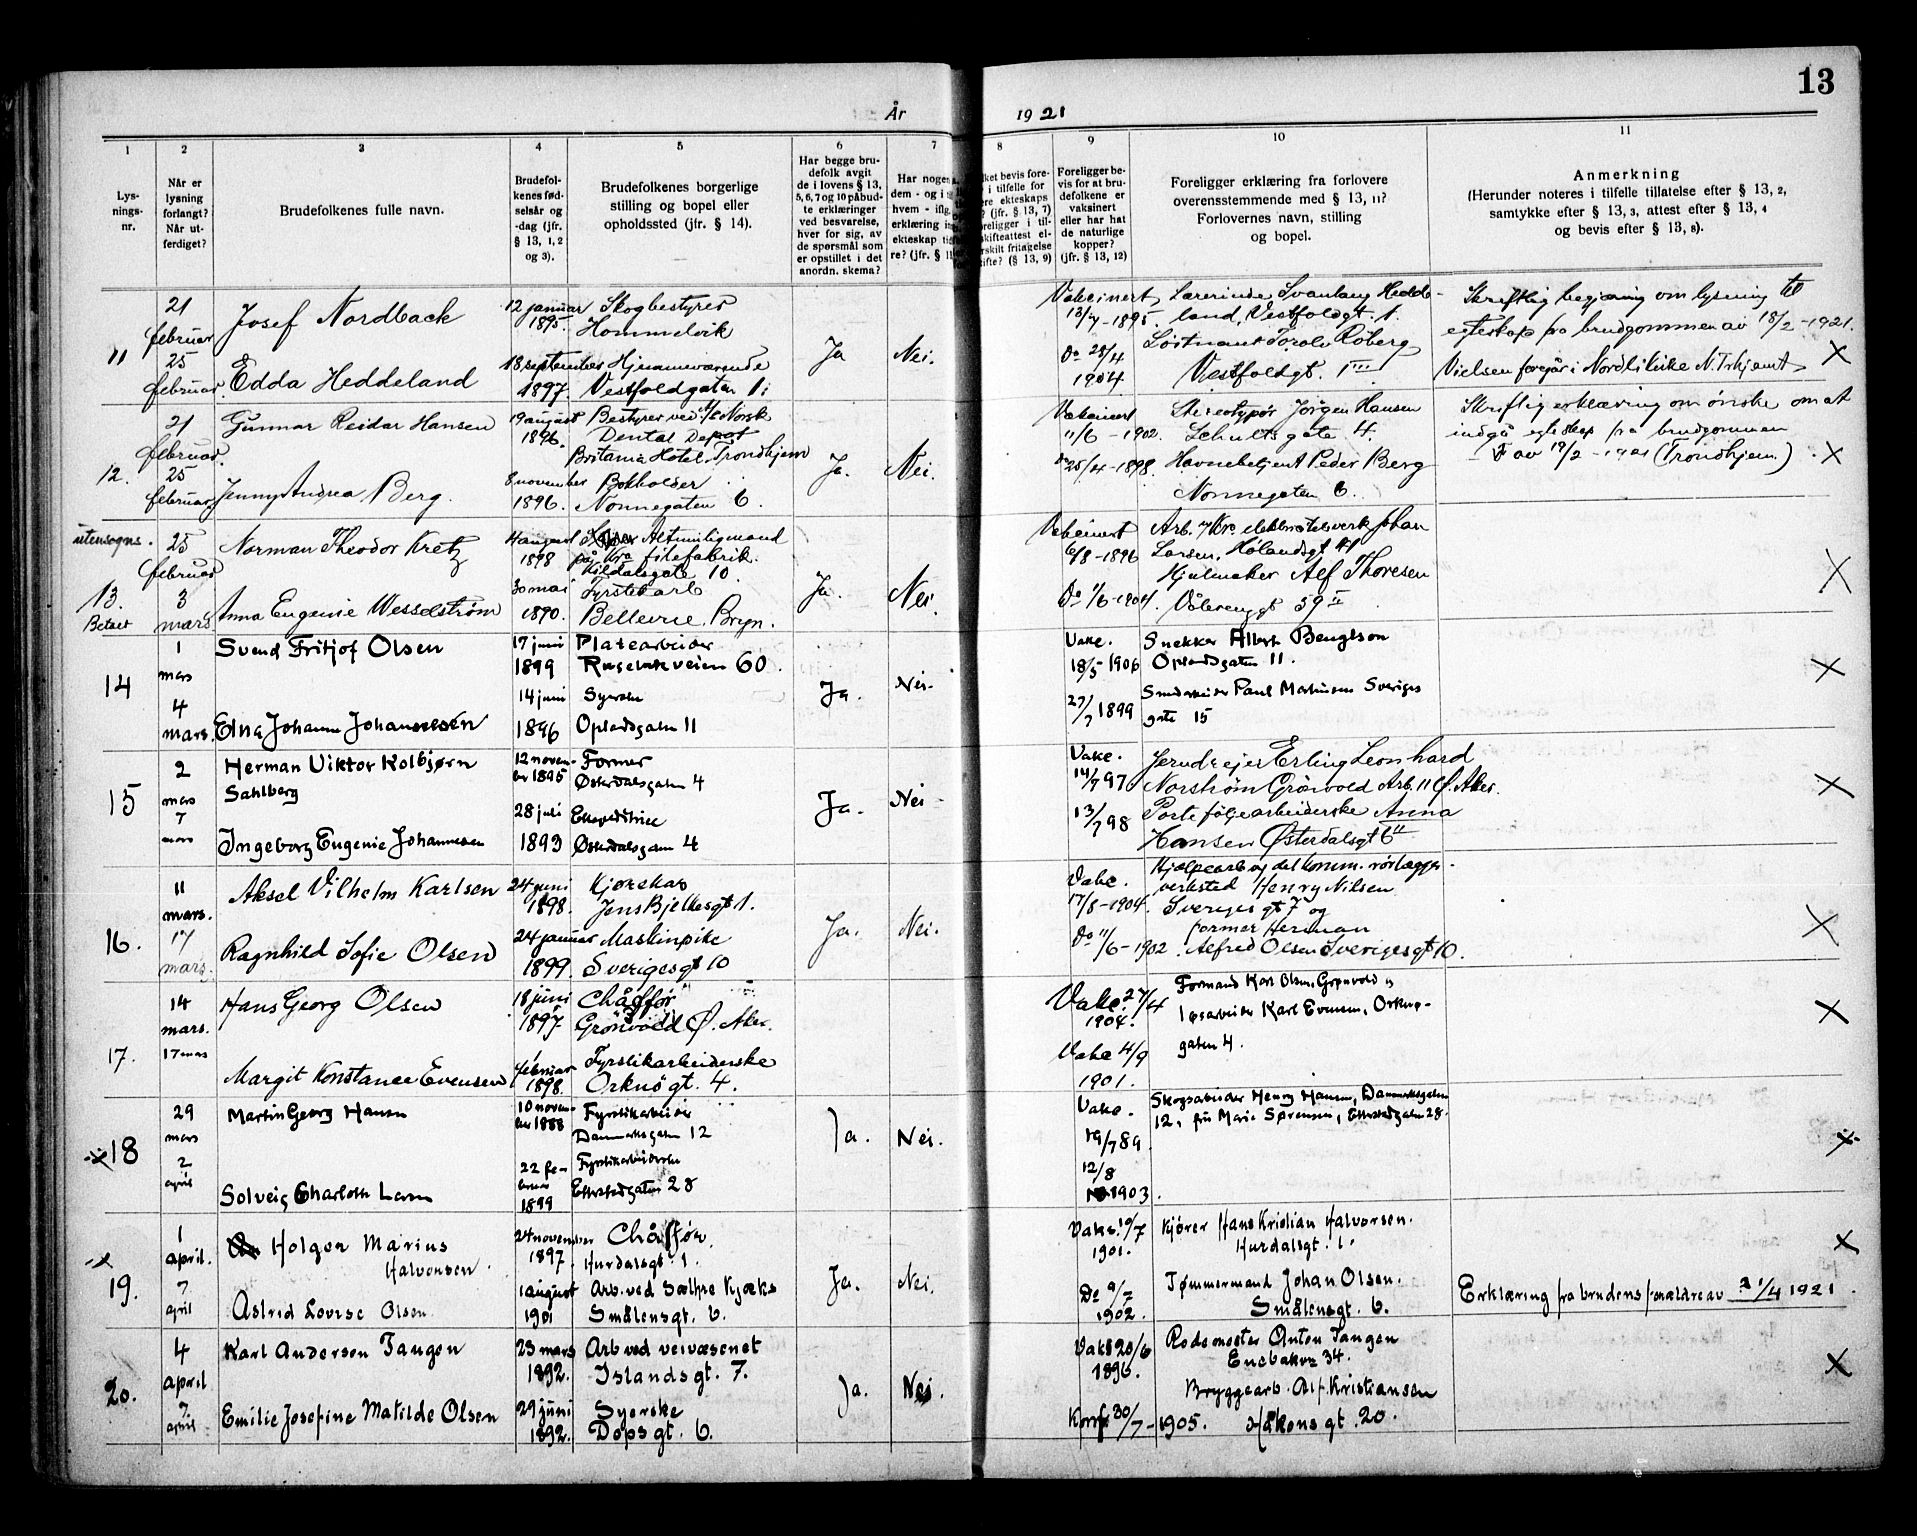 13
År
19 21
1
2
3
4
5
6
7
8
9
10
11
Lys-
nings-
nr.
Når er
lysning
forlangt?
Når ut-
ferdiget?
Brudefolkenes fulle navn.
Brudefol-
kenes fød-
selsår og
-dag (jfr.
§ 13, 1, 2
og 3).
Brudefolkenes borgerlige
stilling og bopel eller
opholdssted (jfr. § 14).
Har begge bru-
defolk avgit
de i lovens § 13,
5, 6, 7 og 10 påbud-
te erklæringer
ved besvarelse,
hver for sig, av
de spørsmål som
er opstillet i det
anordn. skema?
Har nogen
dem - og i
hvem - iflg.
erklæring in
ekteskap tid
re? (jfr. § 11
ket bevis fore-
i tilfelle for
ere ekteskaps
? (jfr. § 13, 7)
oreligger i til-
skifteattest el-
rskilt fritagelse
kifte? (§ 13, 9)
Foreligger be-
vis for at bru-
defolkene er
vaksinert
eller har hat
de naturlige
kopper?
(jfr. § 13, 12)
Foreligger erklæring fra forlovere
overensstemmende med § 13, 11?
Forlovernes navn, stilling
og bopel.
Anmerkning
(Herunder noteres i tilfelle tillatelse efter § 13, 2,
samtykke efter § 13, 3, attest efter § 13, 4
og bevis efter § 13, 8).
11
21
februar
25
februar
Josef Nordback
12 januar
1895.
Skogbestyrer
Hommelvik
Edda Heddeland
18 september
1897.
Hjemmeværende
Vestfoldgaten 1i
Ja
Nei.
Vakcinert
13/7-1895.
Do 28/4
1904
Lærerinde Svanlaug Hedde-
land, Vestfoldgt. 1.
Løitnant Torolv Roberg
Vestfoldgt. 1 III
Skriftlig begjæring om lysning til
egteskap fra brudgommen av 18/2-1921.
Vielsen foregår i Nordlikirke N. Trhjemt
X
12.
21
februar.
25
februar
Gunnar Reidar Hansen
19 august
1896.
Bestyrer ved A/S Norsk
Dental Depot
Britania Hotel Trondhjem
Jenny Andrea Berg.
8 november
1896.
Bokholder
Nonnegaten 6.
Ja.
Nei.
Vakcinert
11/6-1902.
Do 25/4-1898.
Stereotypør Jörgen Hansen
Schultsgate 4.
Havnebetjent Peder Berg
Nonnegaten 6.
Skriftlig erklæring om ønske om at
indgå egteskap fra brudgommen
av 19/2-1921 (Trondhjem).
X
utensogns.
13.
Betalt
25
februar
3
mars
Norman Theodor Kretz
4 august
1898
Altmuligmand
på Kra filefabrik.
Kildalsgate 10.
Anna Eugenie Wesselstrøm
30 mai
1890.
Fyrstikarb
Bellevue, Bryn.
Ja.
Nei.
Vakcinert
6/8-1896
Do 11/6-1904.
Arb. v/ Kra elektricitetsverk Johan
Larsen, Hølandsgt 41
Hjulmaker Alf Thoresen
Vålerengt 39 II
X
14
1
mars
4
mars.
Svend Fritjof Olsen
17 juni
1899
Platearbeider
Ruseløkveien 60.
Edna Johanne Johannesen
14 juni
1896
Syerske
Oplandsgaten 11
Ja.
Nei.
Vakc.
18/5 1906
27/7 1899
Snekker Albert Bengtson
Oplandsgaten 11.
Smedarbeider Paul Martinsen Sveriges
gate 15
X
15
2
mars
7
mars
Herman Viktor Kolbjørn
Sahlberg
12 novem-
ber 1895
Former
Østerdalsgaten 4
Ingeborg Eugenie Johannesen
28 juli
1893
Ekspeditrice
Østerdalsgaten 4
Ja.
Nei
Vakc.
14/7 97
13/7 98
Jerndreier Erling Leonhard
Norstrøm Grönvold Arb. 11 Ø. Aker.
Porteføljearbeiderske Anna
Hansen Østerdalsgt 6 II
X
16.
11
mars.
17
mars.
Aksel Vilhelm Karlsen
24 juni
1898.
Kjørekar
Jens Bjelkesgt 1.
Ragnhild Sofie Olsen
24 januar
1899.
Maskinpike
Sverigesgt 10
Ja.
Nei.
Vakc.
17/8-1904.
Do 11/6-1902.
Hjælpearb. v/ det komm. rørlægger-
verksted Henry Nilsen
Sverigesgt 7 og
former Herman
Alfred Olsen Sverigesgt 10.
X
17.
14
mars.
17 mars
Hans Georg Olsen
18 juni
1897
Chåffør
Grönvold Ø. Aker.
Margit Konstance Evensen
4 februar
1898.
Fyrstikarbeiderske
Orknögt. 4.
Vakc. 27/4
1904.
Vakc 4/9
1901.
Formand Karl Olsen, Grønvold 11
Løsarbeider Karl Evensen, Orknø-
gaten 4.
X
18
29
mars
2
april
Martin Georg Hansen
10 novem-
ber 1888
Fyrstikarbeider
Danmarksgaten 12
Solveig Charlotte Larsen
22 fe-
bruar
1899
Fyrstikarbeiderske
Etterstadgaten 28
Ja.
Nei.
Vakc.
19/7 89
12/8
1903.
Skogsarbeider Henry Hansen, Danmarksgaten
12, fru Marie Sørensen, Etterstedgaten 28.
X
19.
1
april.
7
april
Holger Marius
Halvorsen.
24 november
1897.
Chåffør.
Hurdalsgt. 1.
Astrid Lovise Olsen
1 august
1901
Arb. ved Sætre Kjæks
Smålensgt. 6.
Ja.
Nei.
Vaks. 10/7
1901.
Do 9/7
1902.
Kjører Hans Kristian Halvorsen.
Hurdalsgt. 1.
Tømmermand Johan Olsen.
Smålensgt. 6.
Erklæring fra brudens forældre av 1/4 1921.
X
20.
4
april
7
april
Karl Andersen Tangen
23 mars
1892.
Arb ved veivæsenet
Islandsgt. 7.
Emilie Josefine Matilde Olsen
29 juni
1892.
Syerske
Dopsgt. 6.
Ja.
Nei.
Vaks 20/6
1896.
Konf. 30/7-1905.
Rodemester Anton Tangen
Enebakvn 34.
Bryggearb. Alf Kristiansen
Håkonsgt. 20.
X